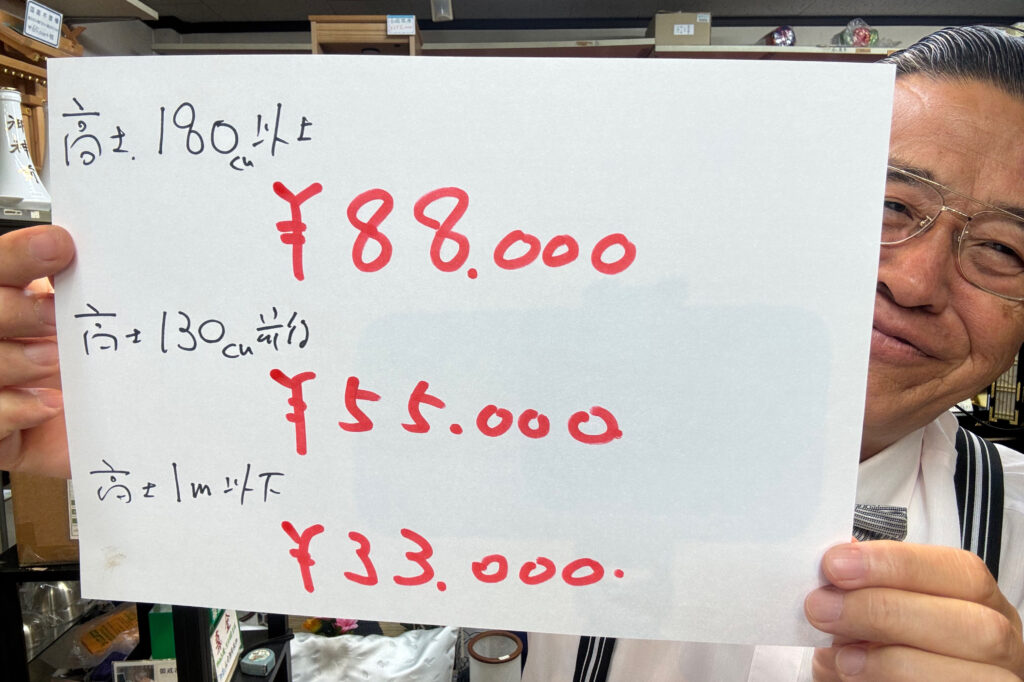 高さ 180cm以上
¥88.000
高さ130cm前後
¥55.000
高さ1m以下
¥33.000.